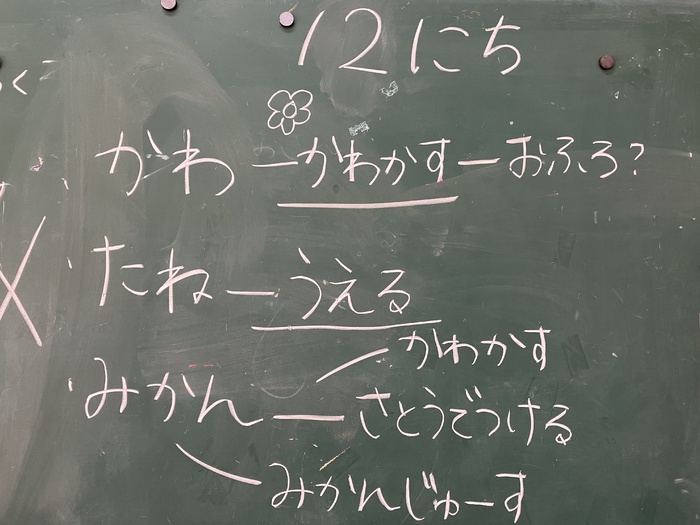 12にち
かわ ― かわかす ― おふろ?
たね ― うえる
かわかす
みかん ― さとうでつける
みかんじゅーす